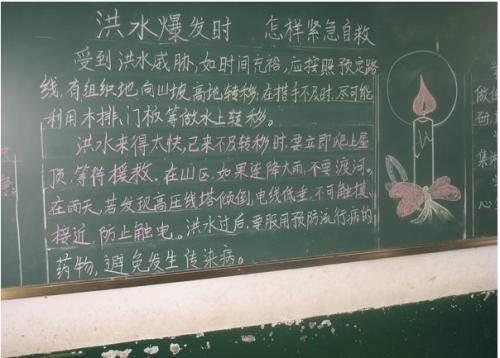 洪水爆发时 怎样紧急自救
受到洪水威胁,如时间充裕,应按照预定路
线,有组织地向山坡高地转移,在措手不及时,尽可能
利用木排、门板等做水上转移。
洪水来得太快,已来不及转移时,要立即爬上屋
顶,等待援救。在山区,如果连降大雨,不要渡河。
在雨天,若发现高压线塔倾倒,电线低垂,不可触摸、
接近,防止触电。洪水过后,要服用预防流行病的
药物,避免发生传染病。
做
研
集
心